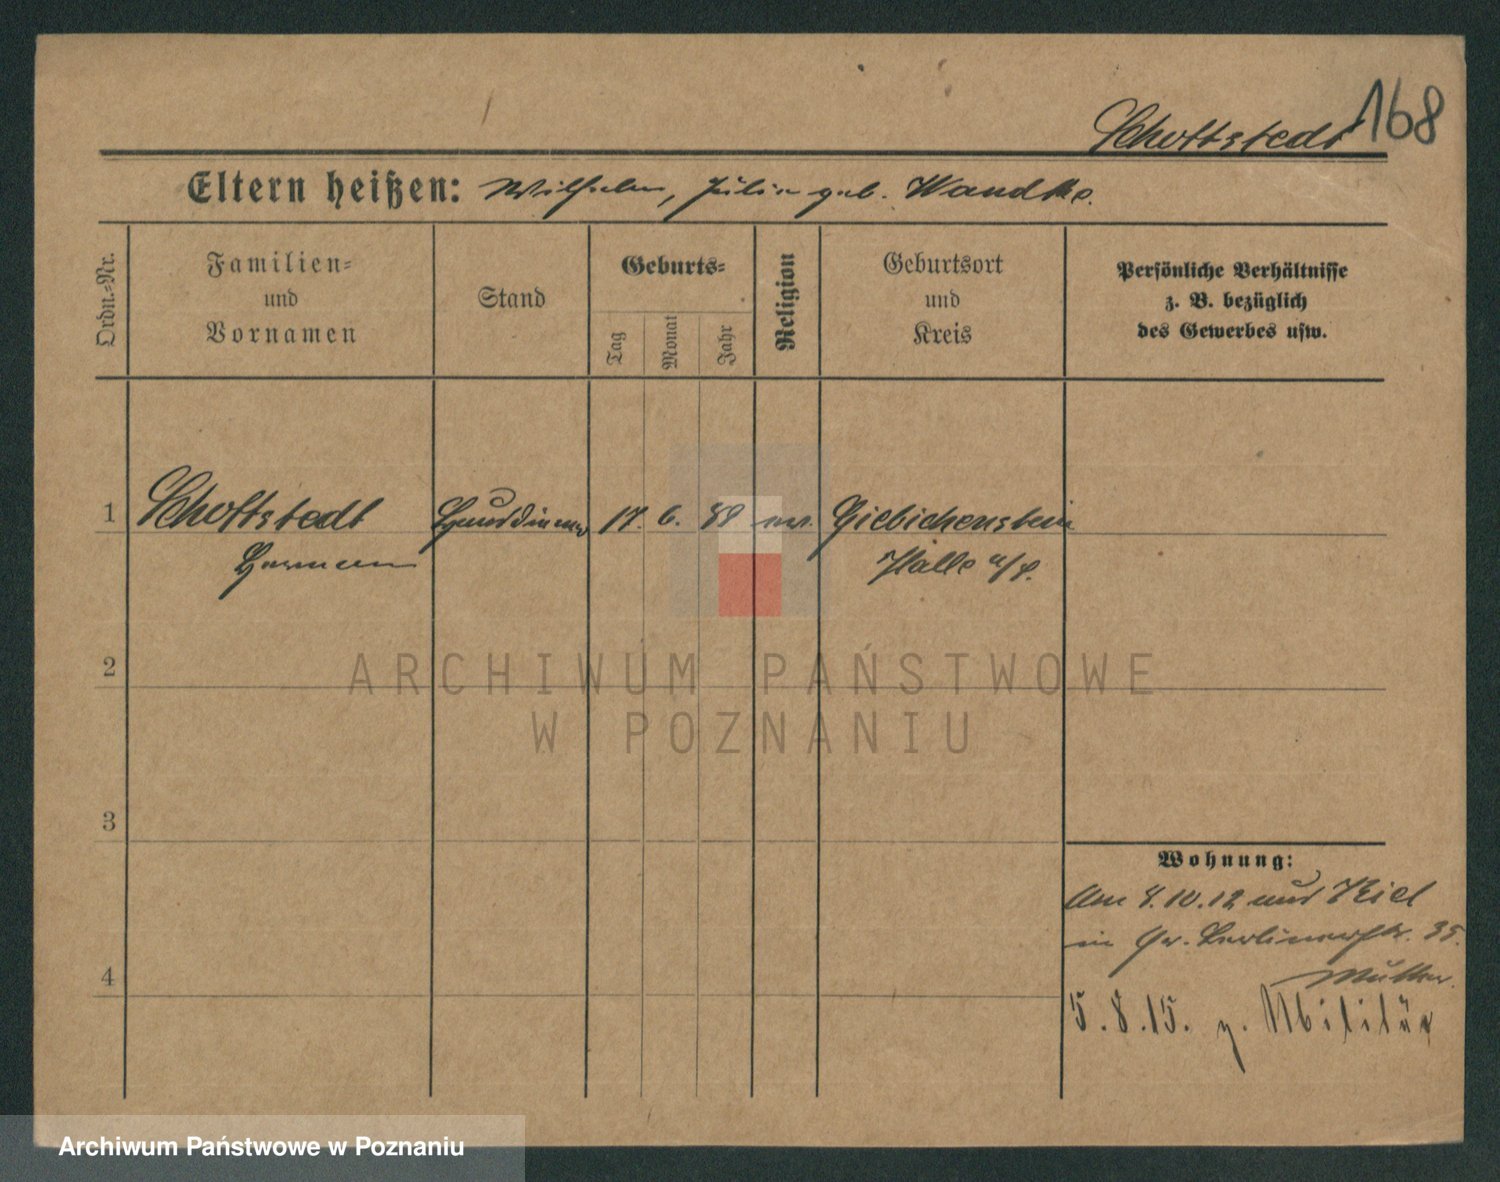 168
Schottstedt
Eltern heißen: Wilhelm, Julie geb. Wandke.
Ordn.-Nr.
Familien-
und
Vornamen
Stand
Geburts-
Tag
Monat
Jahr
Religion
Geburtsort
und
Kreis
Persönliche Verhältnisse
z. B. bezüglich
des Gewerbes usw.
1 Schottstedt Hausdiener 17. 6. 88 ev. Giebichenstein
Hermann Halle a/S.
ARCHIWUM PAŃSTWOWE
W POZNANIU
2
3
4
Wohnung:
Am 4.10.12 aus Kiel
in Gr. Berlinerstr. 35.
Mutter.
5.8.15. z. Militär
Archiwum Państwowe w Poznaniu